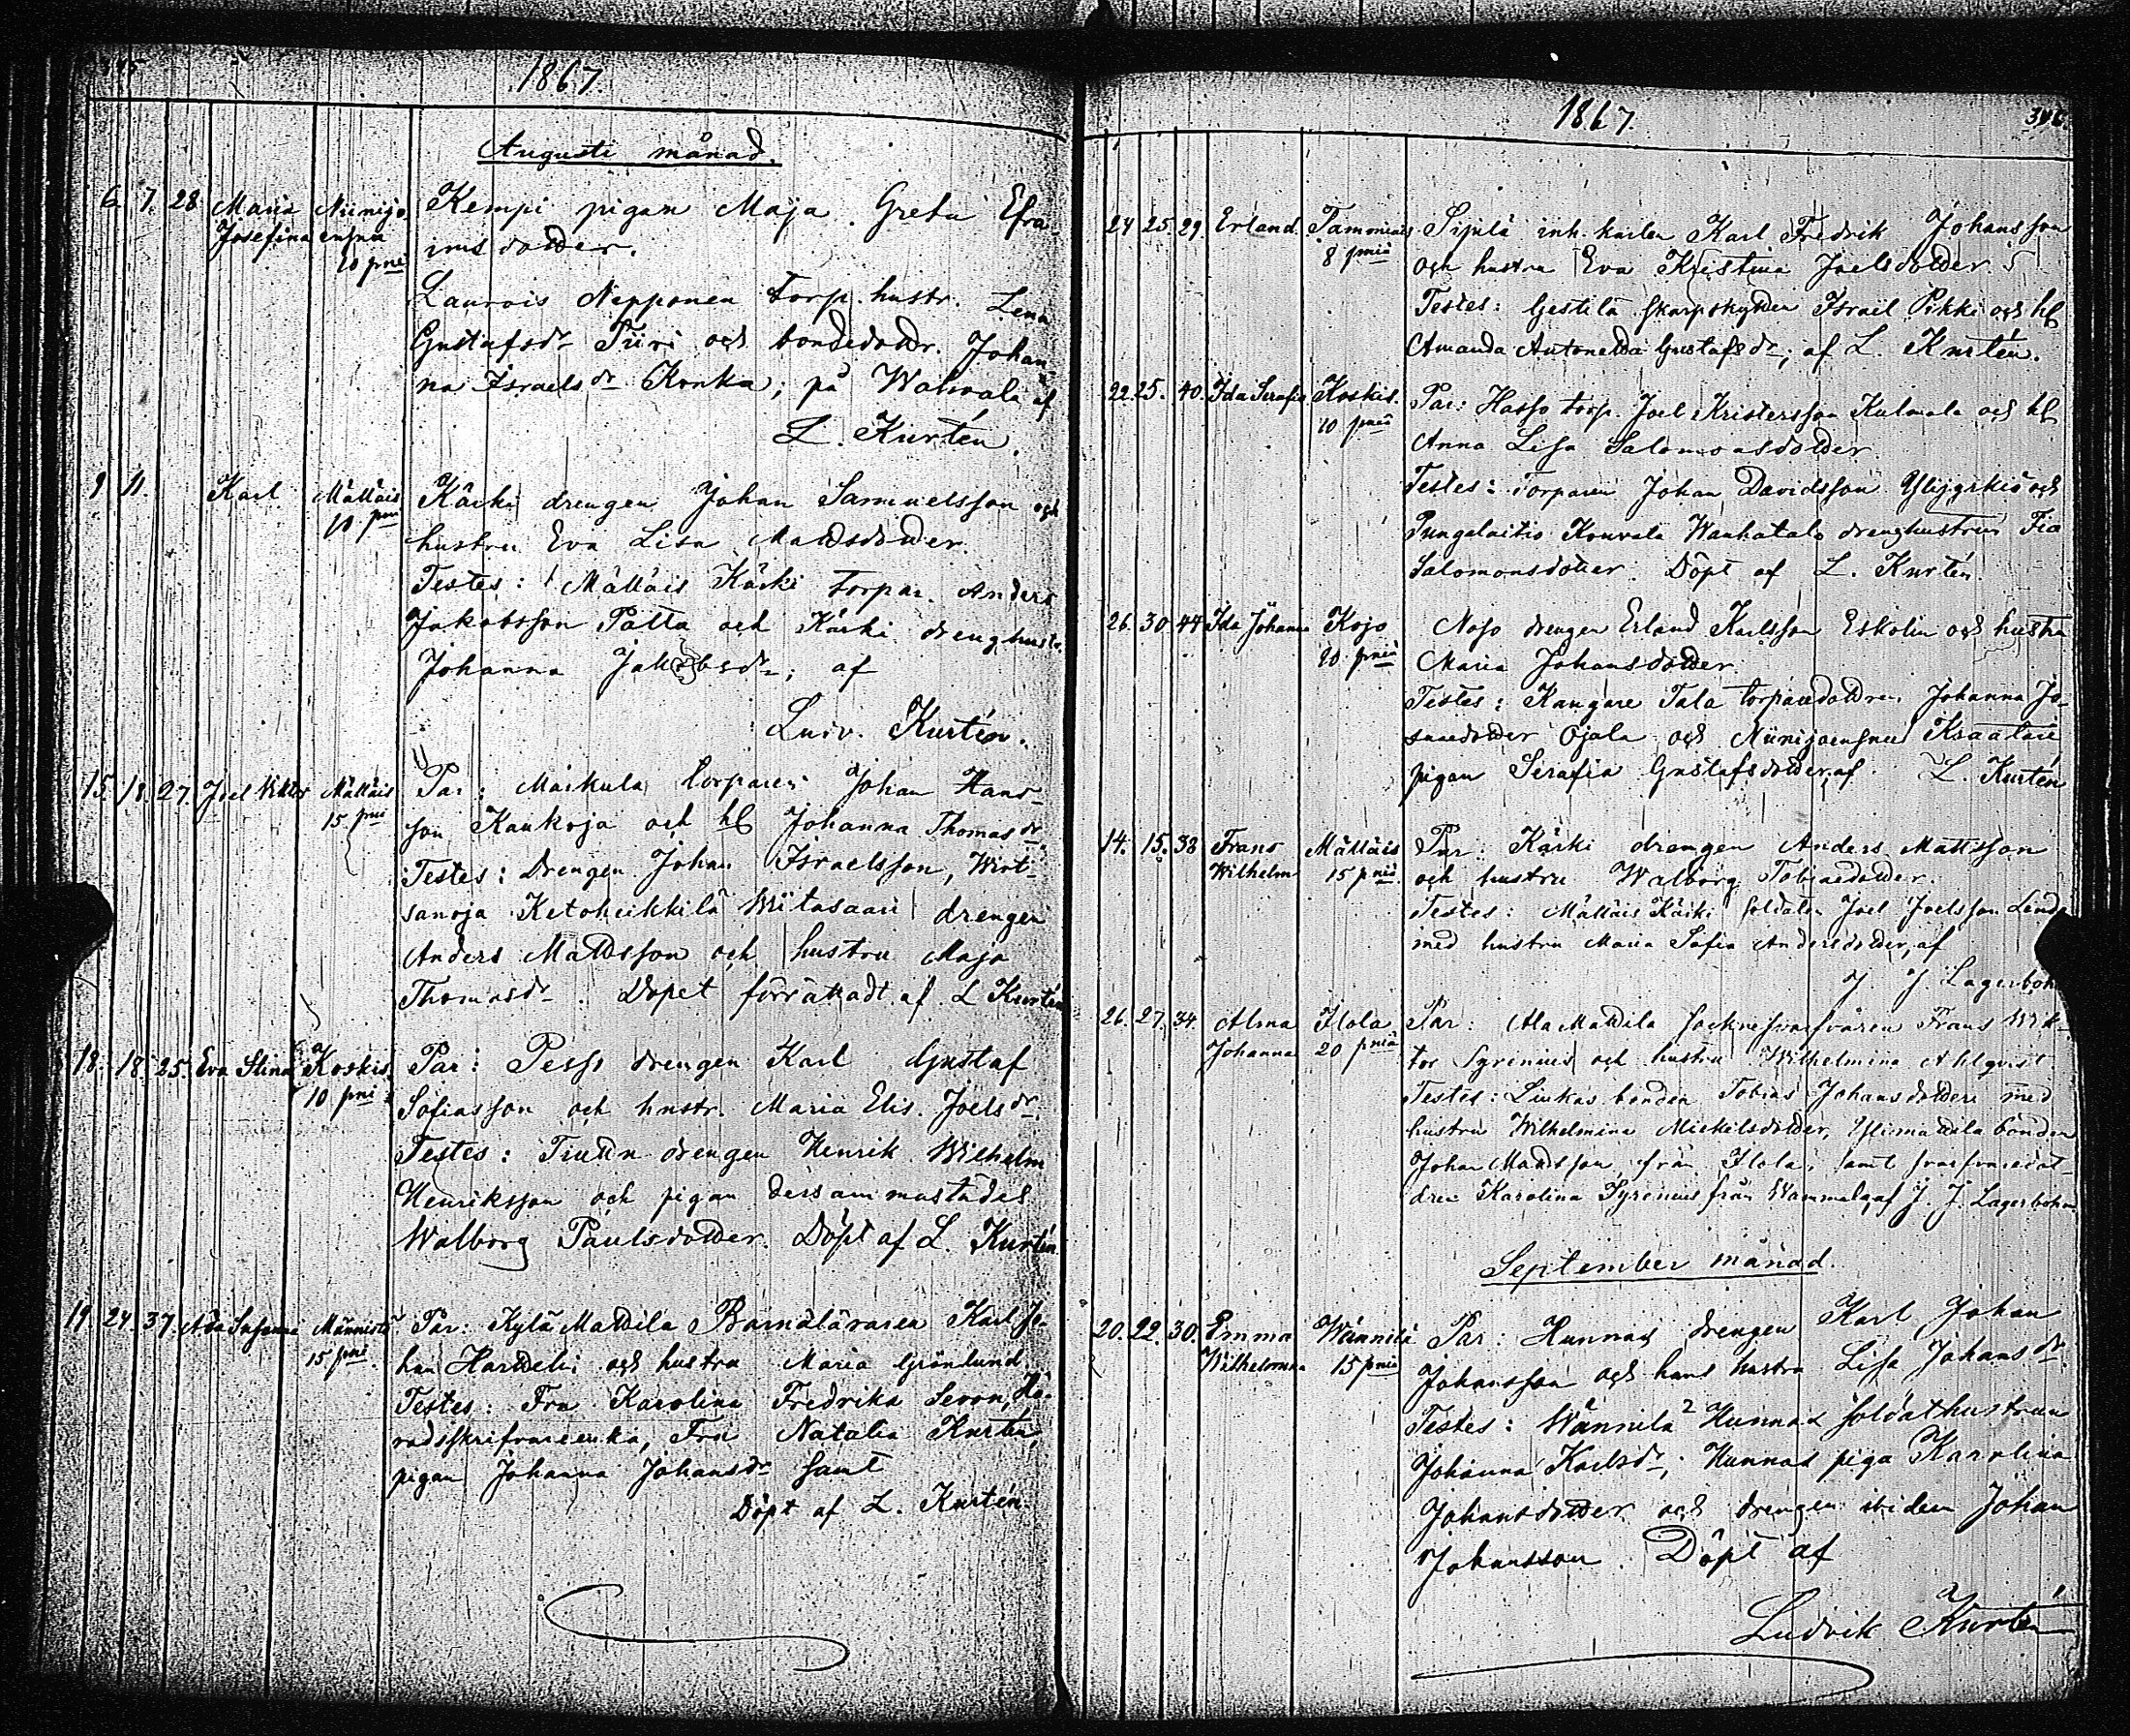 345
1867.
Augusti månad.
6. 7. 28 Maria Niinijo- Kempi pigan Maja Greta Efra-
Josefina ensuu imsdotter.
10 pni
Laurois Nepponen torp. hustr. Lena
Gustafsdr Tiiri och bondedottr. Johan-
na Israelsdr Konka; på Wahvala af
L. Kurtén.
9 11. Karl Mälläis Kärki drengen Johan Samuelsson och
10 pni hustru Eva Lisa Mattsdotter.
Testes: Mälläis Kärki torpar. Anders
Jakobsson Pätta och Kärki drenghustr.
Johanna Jakobsdr; af
Ludv. Kurtén.
15. 18. 27. Joel Viktor Mälläis Par: Markula torparen Johan Hans-
15 pni son Kaukoja och h Johanna Thomasdr
Testes: Drengen Johan Israelsson, Wirt-
sanoja Ketoheikkilä Wiitasaari drengen
Anders Mattsson och hustru Maja
Thomasdr. Dopet förrättadt af L Kurtén
18. 18. 25. Eva Stina Koskis. Par: Pesso drengen Karl Gustaf
10 pni Sofiasson och hustr. Maria Elis. Joelsdr.
Testes: drengen Henrik Wilhelm
Henriksson och pigan dersammastädes
Walborg Paulsdotter. Döpt af L. Kurtén
19 24. 37. Ada Susanna Männistö Par: Kylä Mattila Barnaläraren Karl Jo-
15 pni. han och hustru Maria Grönlund.
Testes: Fru Karolina Fredrika Sevon, Hä-
radsskrifvareenka, Fru Natalia Kurtén,
pigan Johanna Johansdr samt
Döpt af L. Kurtén.
1867.
346.
24 25. 29. Erland. Tammiais Sipilä inh. karlen Karl Fredrik Johansson
8 pniä och hustru Eva Kristina Joelsdotter.
Testes: Gestilä skarpskytten Israel Pikki och h
Amanda Antonetta Gustafsdr; af L. Kurtén.
22. 25. 40. Ida Serafia Koskis. Par: Hasso torp. Joel Kristersson Kulmala och h
10 pniä Anna Lisa Salomonsdotter.
Testes: Torparen Johan Davidsson Ylijyrkiö och
Pungalaitio Konvala Wanhatalo drenghustrun Fia
Salomonsdotter. Döpt af L. Kurtén.
26. 30. 44 Ida Johanna Kojo Nojo drengen Erland Karlsson Eskolin och hustru
20 pniä Maria Johansdotter.
Testes: Kangare Tala torparedottren Johanna Jo-
suaedotter Ojala och Niinijoensuu
pigan Serafia Gustafsdotter, af L. Kurtén
14. 15. 38 Frans Mälläis Par: Kärki drengen Anders Mattsson
Wilhelm 15 pniä. och hustru Walborg Tobiaedotter.
Testes: Mälläis Kärki soldaten Joel Joelsson Lind
med hustru Maria Sofia Andersdotter, af
J. J. Lagerbohm
26. 27. 34. Alma Ilola Par: Ala Mattila sockneskräddaren Frans Wik-
Johanna 20 pniä tor Syrenius och hustru Wilhelmina Ahlqvist.
Testes: Liukas bonden Tobias Johansdotter med
hustru Wilhelmina Mickelsdotter, Ylimattila bonden
Johan Mattsson från Ilola, samt
dren Karolina Syrenius från Wammala, af J. J. Lagerbohm
September månad.
20. 22. 30. Emma Wännilä Par: Hunnas drengen Karl Johan
Wilhelmina 15 pniä Johansson och hans hustru Lisa Johansdr.
Testes: Wännilä Hunnas soldathustrun
Johanna Karlsdr; Hunnas piga Karolina
Johansdotter och drengen ibidem Johan
Johansson. Döpt af
Ludvik Kurtén